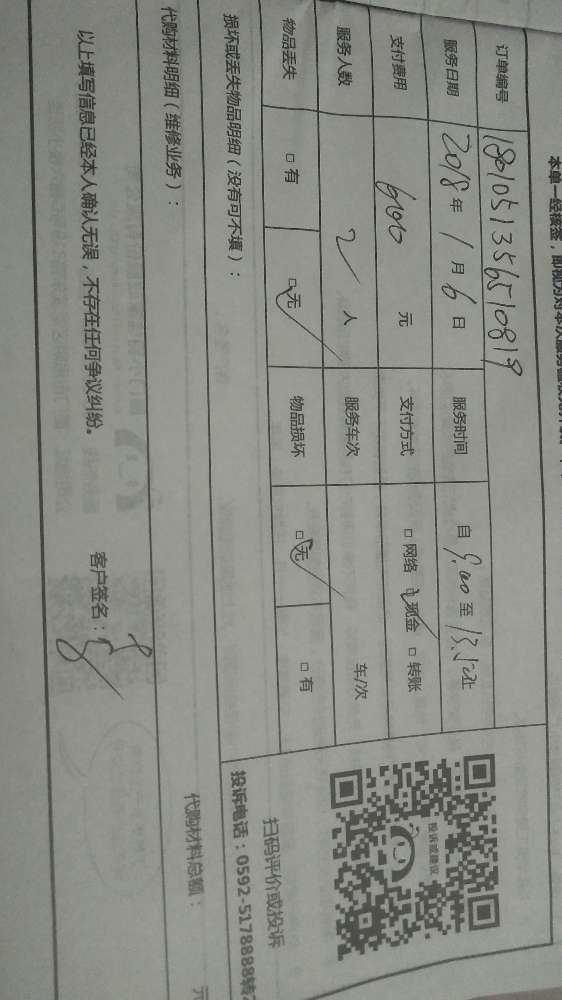 本单一经核签，即视为对本次服务
订单编号 1801051356510819
服务日期 2018 年 1 月 6 日 服务时间 自 9.00 至 13.50 止
支付费用 600 元 支付方式 □ 网络 □ 现金 □ 转账
服务人数 2 人 服务车次 车/次
物品丢失 □ 有 □ 无 物品损坏 □ 无 □ 有
损坏或丢失物品明细（没有可不填）：
代购材料明细（维修业务）：
代购材料总额： 元
以上填写信息已经本人确认无误，不存在任何争议纠纷。
客户签名：
投诉或建议
扫码评价或投诉
投诉电话：0592-5178888转